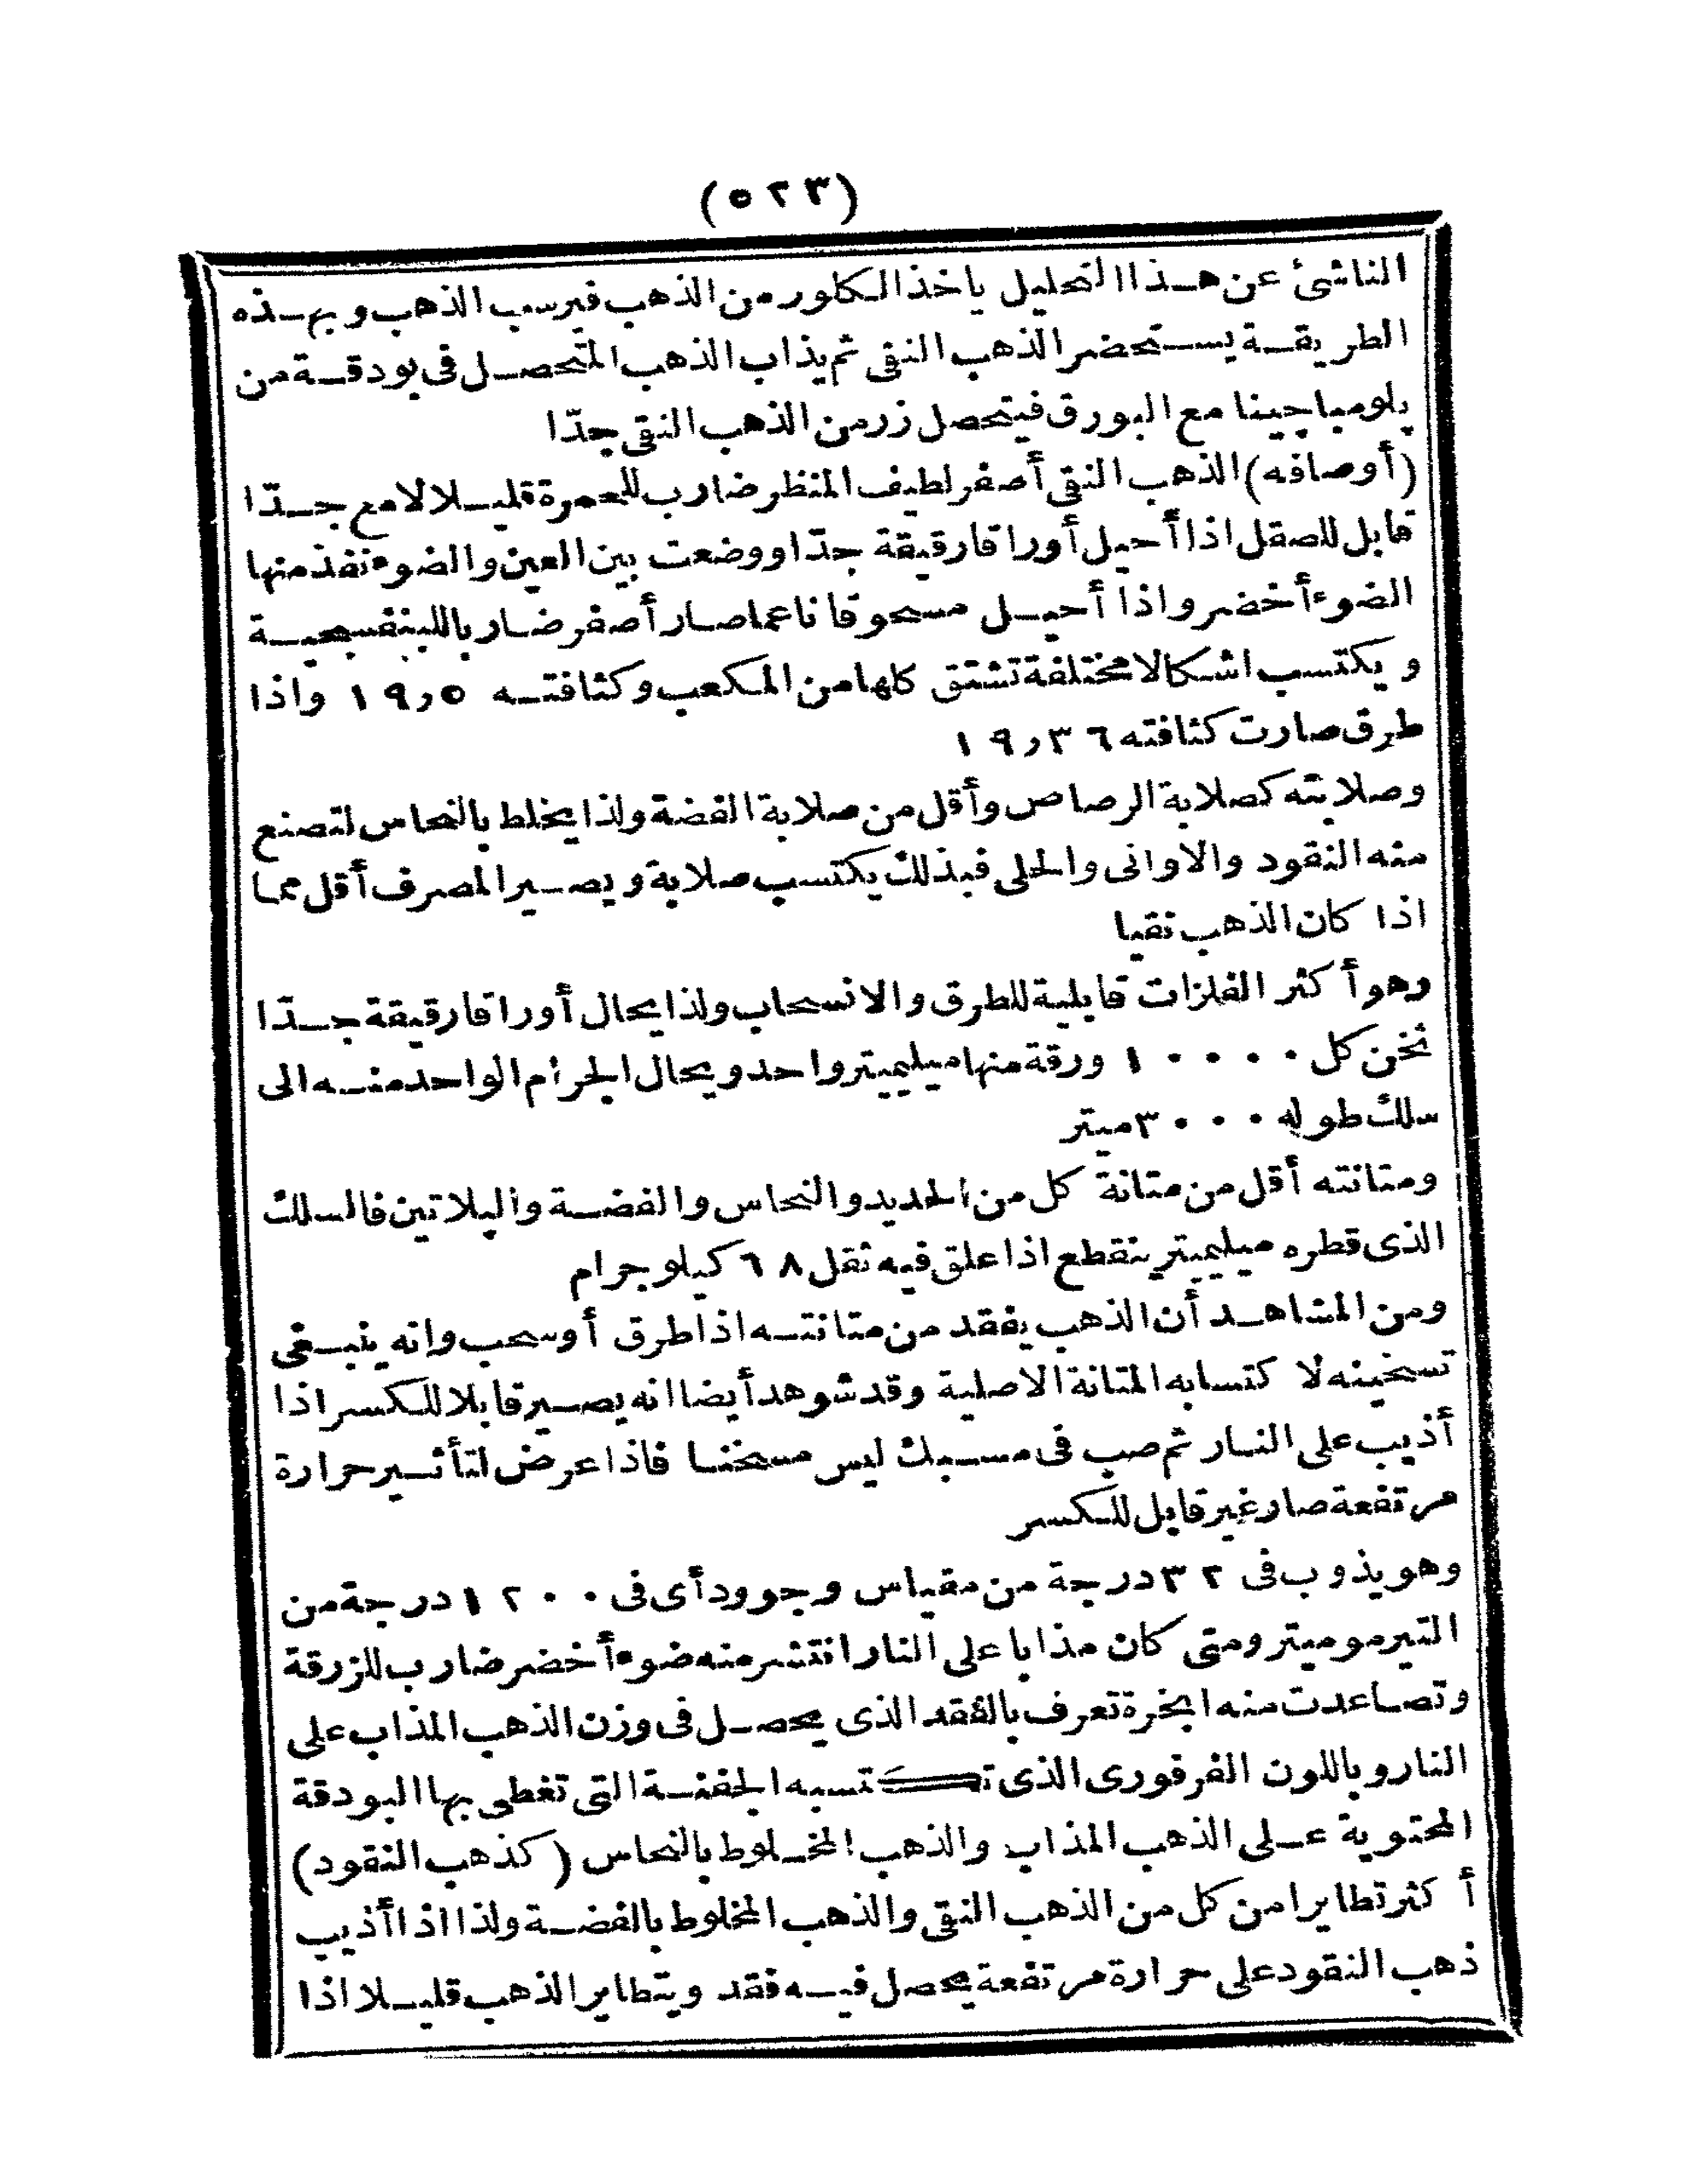 (٥٢٣)
الناشئ عن هذا التحليل ياخذ الكلور من الذهب فيرسب الذهب وبهذه
الطريقة يستحضر الذهب النقى ثم يذاب الذهب المتحصل فى بودقة من
پلومباچينا مع البورق فيتحصل زر من الذهب النقى جدّا
(أوصافه) الذهب النقى أصفر لطيف المنظر ضارب للحمرة قليلا لامع جدّا
قابل للصقل اذا أحيل أوراقا رقيقة جدّا ووضعت بين العين والضوء نفذ منها
الضوء أخضر واذا أحيل مسحوقا ناعما صار أصفر ضاربا للبنفسجية
ويكتسب اشكالا مختلفة تشتق كلها من المكعب وكثافته ١٩٫٥ واذا
طرق صارت كثافته ١٩٫٣٦
وصلابته كصلابة الرصاص وأقل من صلابة الفضة ولذا يخلط بالنحاس لتصنع
منه النقود والاوانى والحلى فبذلك يكتسب صلابة ويصير المصرف أقل مما
اذا كان الذهب نقيا
وهو أكثر الفلزات قابلية للطرق والانسحاب ولذا يحال أوراقا رقيقة جدّا
ثخن كل ١٠٠٠٠ ورقة منها ميليميتر واحد ويحال الجرام الواحد منه الى
سلك طوله ٣٠٠٠ ميتر
ومتانته أقل من متانة كل من الحديد والنحاس والفضة والپلاتين فالسلك
الذى قطره ميليميتر ينقطع اذا علق فيه ثقل ٦٨ كيلو جرام
ومن المشاهد أن الذهب يفقد من متانته اذا طرق أوسحب وانه ينبغى
تسخينه لا كتسابه المتانة الاصلية وقد شوهد أيضا انه يصير قابلا للكسر اذا
أذيب على النار ثم صب فى مسبك ليس مسخنا فاذا عرض لتأثير حرارة
مرتفعة صار غير قابل للكسر
وهو يذوب فى ٣٢ درجة من مقياس وجوود أى فى ١٢٠٠ درجة من
التيرموميتر ومتى كان مذابا على النار انتشر منه ضوء أخضر ضارب للزرقة
وتصاعدت منه ابخرة تعرف بالفقد الذى يحصل فى وزن الذهب المذاب على
النار وباللون الفرفورى الذى تكتسبه الجفنة التى تغطى بها البودقة
المحتوية على الذهب المذاب والذهب المخلوط بالنحاس (كذهب النقود)
أكثر تطايرا من كل من الذهب النقى والذهب المخلوط بالفضة ولذا اذا أذيب
ذهب النقود على حرارة مرتفعة يحصل فيه فقد ويتطاير الذهب قليلا اذا